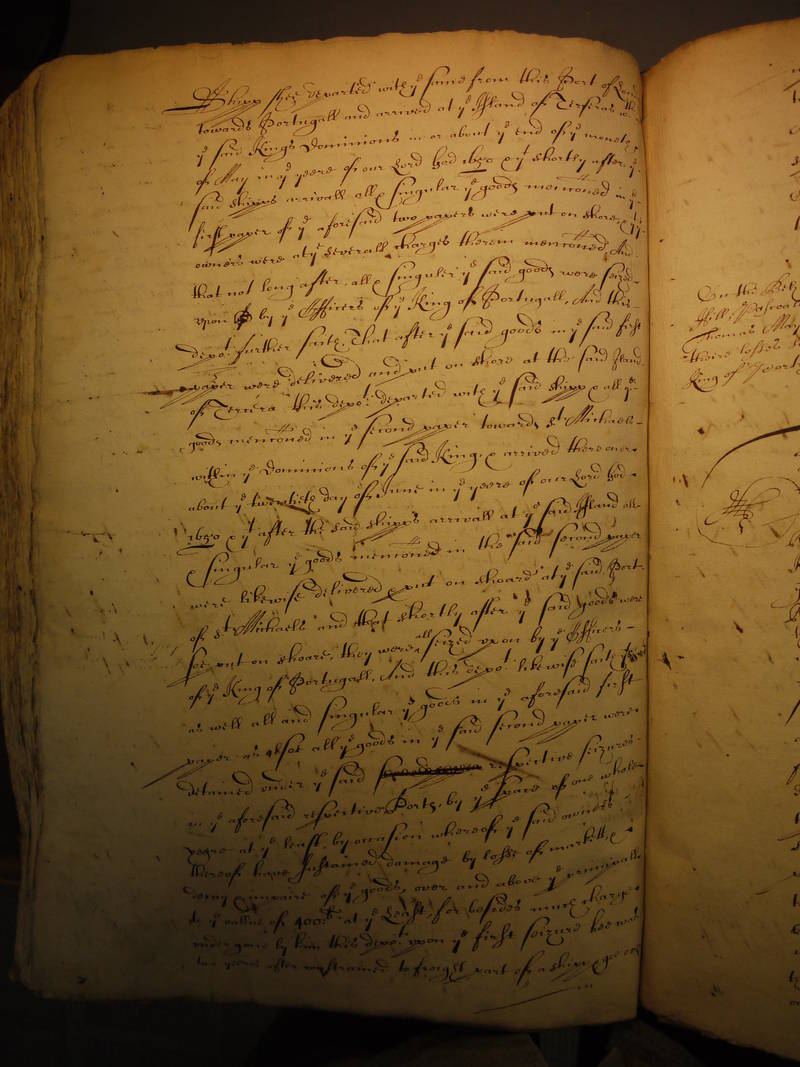 Shipp hee departed with ye same from this Port of London
towards Portugall and arrived at ye Island of Terseras in
ye said Kings Dominions in or about ye end of ye moneth
of May in ye yeere of our Lord God 1650 & yt shortly after ye
said shipps arrivall all & singular ye goods mentioned in ye
first paper of ye aforesaid two papers were put on shore & ye
owners were at ye severall charges therein mentioned, And
that not long after, all & singuler ye said goods were seized
upon by ye Officers of ye King of Portugall, And this
depot further saith, That after ye said goods in ye said first
paper were delivered and put on shore at the said Iland
of Tercera this depot departed with ye said shipp & all ye
goods mentioned in ye second paper towards St Michaels
within ye Dominions of ye said King, & arrived there on or
about ye twentieth day of June in ye yeere of our Lord God
1650 & yt after the said shipps arrivall at ye said Island all
& singular ye goods mentioned in the said second paper
were likewise delivered & put on shoard at ye said Port
of St Michaels and that shortly after ye said goods were
soe put on shoare, they were all seized upon by ye Officers
of ye King of Portugall, And this depot likewise saith
as well all and singular ye goods in ye aforesaid first
paper as alsoe all ye goods in ye said second paper were
detained under ye said respective seizures
in ye aforesaid respective Ports, by ye space of one whole
yeare at ye least, by occasion whereof ye said owners
thereof have sustained damage by losse of markett, &
decay & impaire of ye goods, over and above ye principall
to ye vallue of 400li at ye least, for besides much charge
undergone by him this depot upon ye first seizure hee was
two yeares after constrained to freight part of a shipp & goe
On the Beh
Hill, Pascoe
Thomas May
theire losses
King of Port